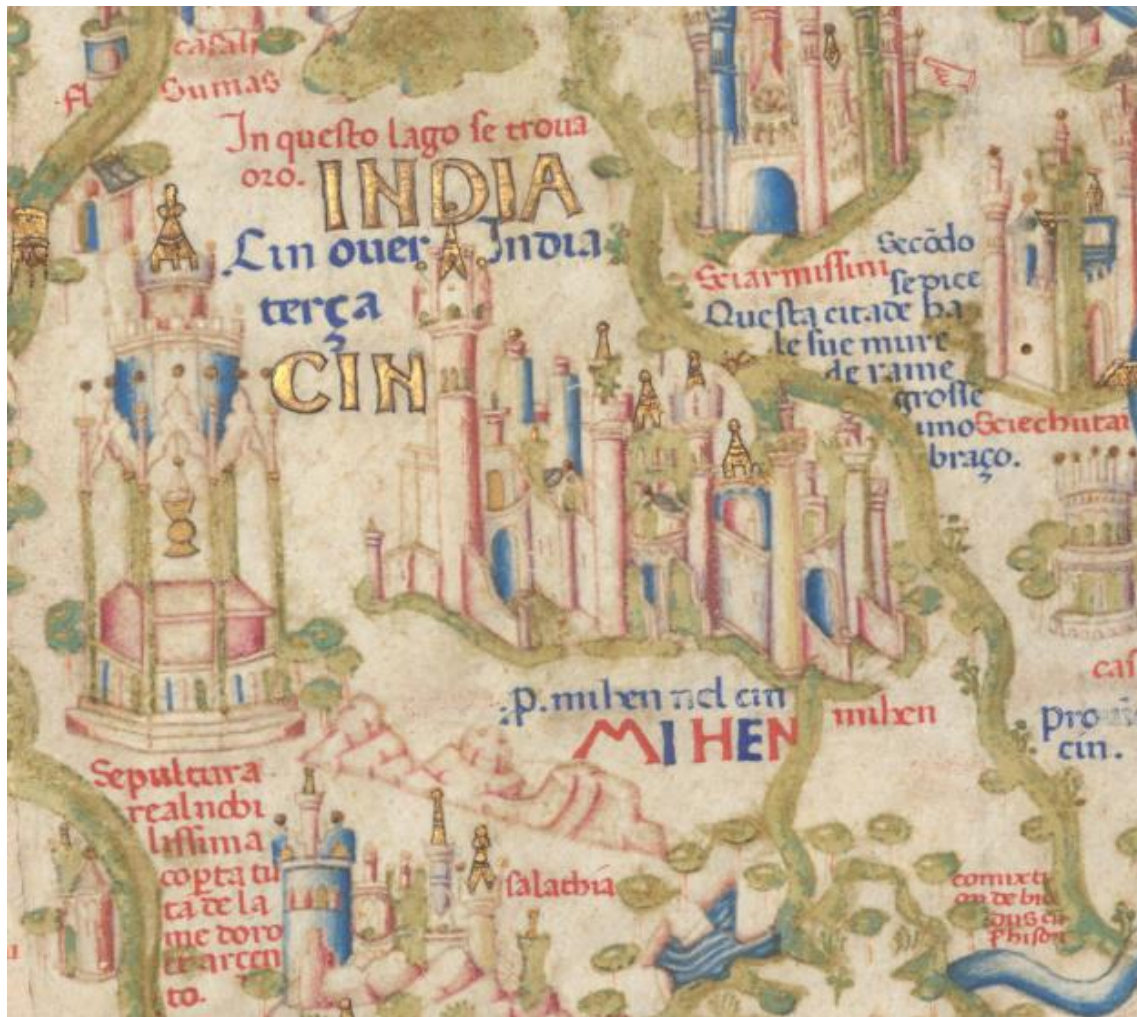 casali
·fl· Sumas
In questo lago se troua
oro.
INDIA
Cin ouer India
terça
CIN
Sciarmissini
Secōdo
se dice
Questa citade ha
le sue mure
de rame
grosse
uno
braço.
Sciechutai
:p. mihen nel cin
MIHEN
mihen
cas
cin.
Sepultura
real nobi
lissima
coperta tu
ta de la
me doro
et arcen
to.
salathia